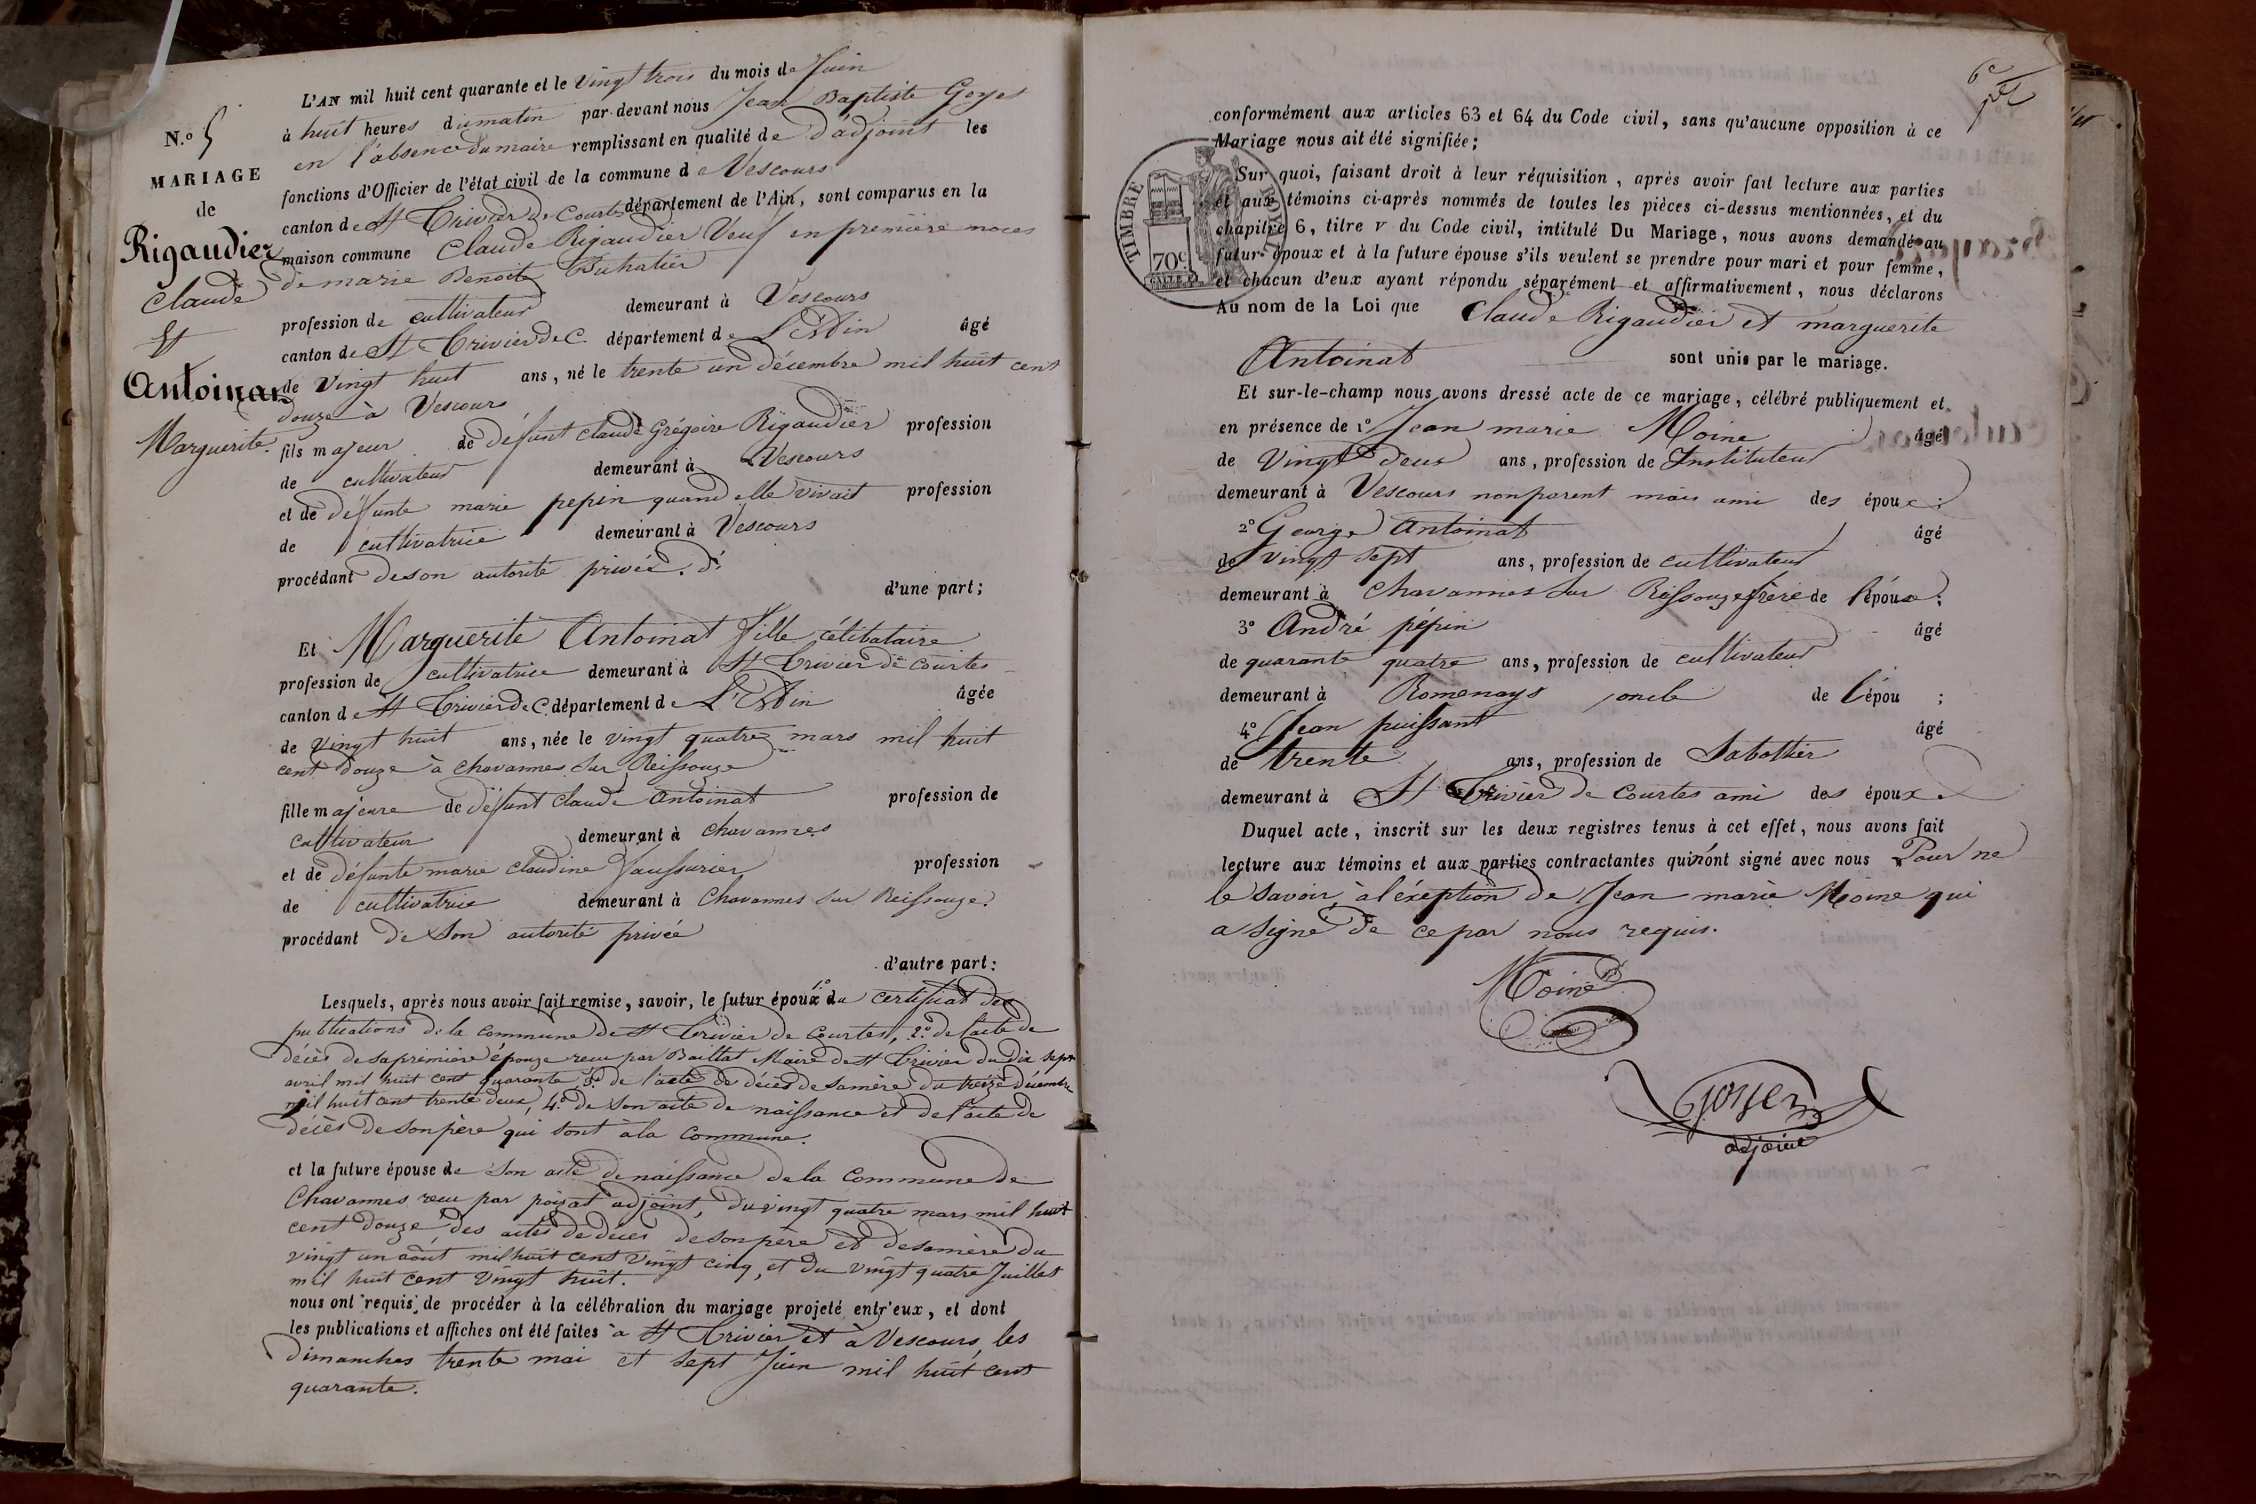 N.o 5
MARIAGE
de
Rigaudier
Claude
Et
Antoinat
Marguerite.
L'AN mil huit cent quarante et le vingt trois du mois de Juin
à huit heures du matin par-devant nous Jean Baptiste Goyer
en l'absence du maire remplissant en qualité de d'adjoint les
fonctions d'Officier de l'état civil de la commune de Vescours
canton de St Trivier de Courtes département de l'Ain, sont comparus en la
maison commune Claude Rigaudier Veuf en première noces
de marie Benoite
profession de cultivateur demeurant à Vescours
canton de St Trivier de C. département de L'Ain âgé
de vingt huit ans, né le trente un décembre mil huit cent
douze à Vescours
fils majeur de défunt Claude Grégoire Rigaudier profession
de cultivateur demeurant à Vescours
et de défunte marie pepin quand elle vivait profession
de cultivatrice demeurant à Vescours
procédant de son autorité privée. d'
d'une part;
Et Marguerite Antoinat fille célibataire
profession de cultivatrice demeurant à St Trivier de Courtes
canton de St Trivier de C. département de L'Ain âgée
de vingt huit ans, née le vingt quatre mars mil huit
cent douze à Chavannes sur Reissouze
fille majeure de défunt Claude Antoinat profession de
cultivateur demeurant à chavannes
et de défunte marie claudine profession
de cultivatrice demeurant à Chavannes sur Reissouze.
procédant de son autorité privée
d'autre part:
Lesquels, après nous avoir fait remise, savoir, le futur époux 1.o du certificat des
publications de la commune de St Trivier de Courtes, 2.o de l'acte de
décès de sa première épouze recu par Maire de St Trivier du dix sept
avril mil huit cent quarante, 3.o de l'acte de décès de sa mère du treize décembre
mil huit cent trente deux, 4.o de son acte de naissance et de l'acte de
décès de son père qui sont à la commune.
et la future épouse de son acte de naissance de la commune de
Chavannes recu par adjoint, du vingt quatre mars mil huit
cent douze, des actes de decès de son père et de sa mère du
vingt un août mil huit cent vingt cinq, et du vingt quatre Juillet
mil huit cent vingt huit.
nous ont requis de procéder à la célébration du mariage projeté entr'eux, et dont
les publications et affiches ont été faites à St Trivier et à Vescours les
dimanches trente mai et sept Juin mil huit cent
quarante.
6e
conformément aux articles 63 et 64 du Code civil, sans qu'aucune opposition à ce
Mariage nous ait été signifiée;
TIMBRE ROYAL
70c
Sur quoi, faisant droit à leur réquisition, après avoir fait lecture aux parties
et aux témoins ci-après nommés de toutes les pièces ci-dessus mentionnées, et du
chapitre 6, titre v du Code civil, intitulé Du Mariage, nous avons demandé au
futur époux et à la future épouse s'ils veulent se prendre pour mari et pour femme,
et chacun d'eux ayant répondu séparément et affirmativement, nous déclarons
Au nom de la Loi que Claude Rigaudier et marguerite
Antoinat sont unis par le mariage.
Et sur-le-champ nous avons dressé acte de ce mariage, célébré publiquement et
en présence de 1o Jean marie Moine âgé
de vingt deux ans, profession de Instituteur
demeurant à Vescours non parent mais ami des époux;
2o George Antoinat âgé
de vingt sept ans, profession de cultivateur
demeurant à Chavannes sur Reissouze frère de l'épouse;
3o André pépin âgé
de quarante quatre ans, profession de cultivateur
demeurant à Romenays oncle de l'épou ;
4o Jean puissant âgé
de trente ans, profession de Sabottier
demeurant à St Trivier de Courtes ami des époux
Duquel acte, inscrit sur les deux registres tenus à cet effet, nous avons fait
lecture aux témoins et aux parties contractantes qui n'ont signé avec nous Pour ne
le savoir, à l'éxéption de Jean marie Moine qui
a signé de ce par nous requis.
Moine
Goyer
adjoint